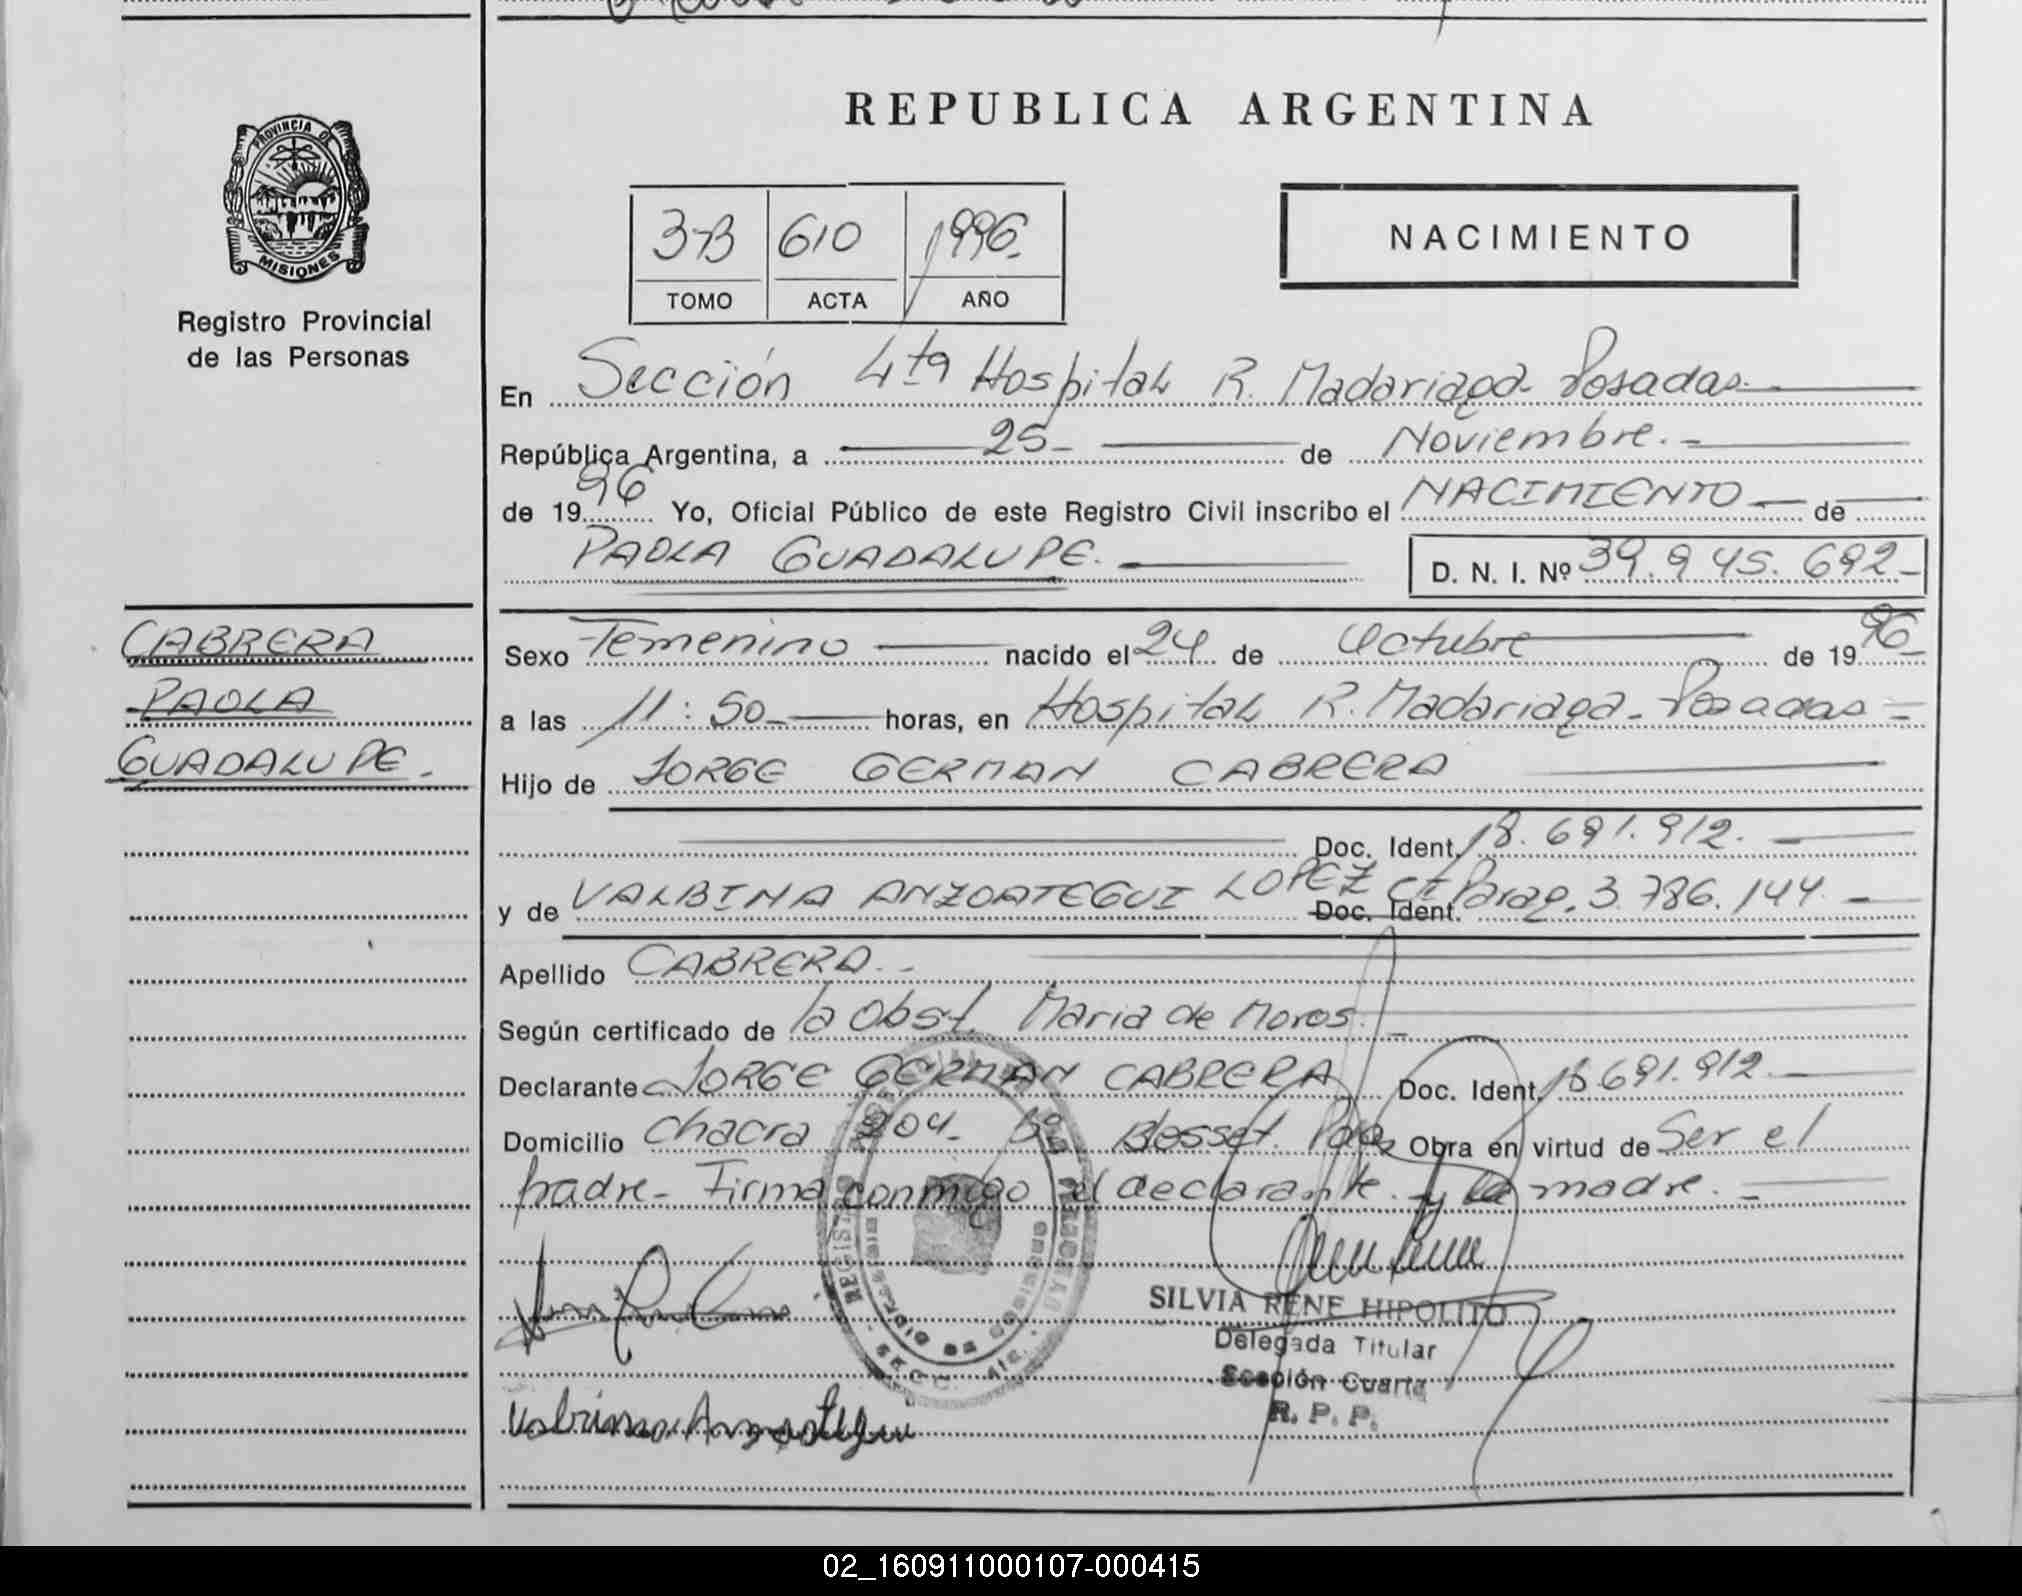 REPUBLICA ARGENTINA
PROVINCIA DE
MISIONES
Registro Provincial
de las Personas
3-B 610 1996.
TOMO ACTA AÑO
NACIMIENTO
En Sección 4ta Hospital R. Madariaga Posadas.
República Argentina, a 25 de Noviembre.
de 1996 Yo, Oficial Público de este Registro Civil inscribo el NACIMIENTO de
PAOLA GUADALUPE. D. N. I. Nº 39.945.692
CABRERA
PAOLA
GUADALUPE.
Sexo Femenino nacido el 24 de Octubre de 1996
a las 11:50 horas, en Hospital R. Madariaga Posadas
Hijo de JORGE GERMAN CABRERA
Doc. Ident. 18.691.912.
y de VALBINA ANZOATEGUI LOPEZ Doc. Ident. CI Parag. 3.786.144
Apellido CABRERA.
Según certificado de la Obst. Maria de Moros.
Declarante JORGE GERMAN CABRERA Doc. Ident. 18.691.912
Domicilio Chacra 204 Bº Bosset. Obra en virtud de Ser el
padre Firma conmigo el declarante y la madre.
Valbina Anzoategui
SILVIA RENE HIPOLITO
Delegada Titular
Sección Cuarta
R. P. P.
02_160911000107-000415